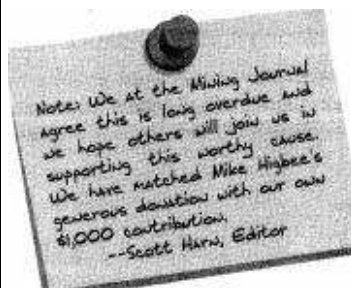 Note: We at the Mining Journal
agree this is long overdue and
we hope others will join us in
supporting this worthy cause.
We have matched Mike Higbee's
generous donation with our own
$1,000 contribution.
--Scott Harn, Editor